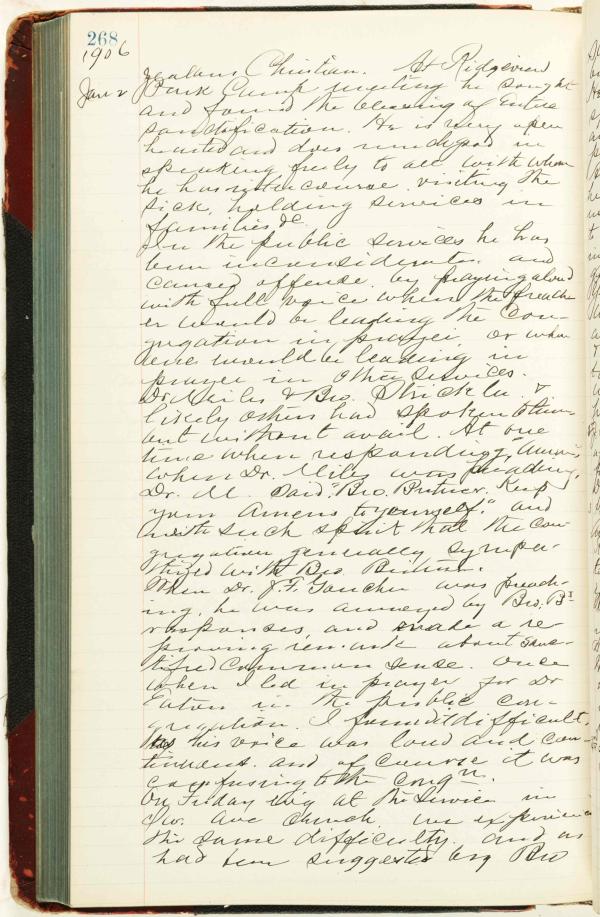 268
1906
Jan 2
zealous Christian. At Ridgeview
Park Camp meeting he sought
and found the blessing of Entire
Sanctification. He is very open
hearted and does much good in
speaking freely to all with whom
he has intercourse, visiting the
sick, holding services in
families &c.
In the public services he has
been inconsiderate, and
caused offense, by praying aloud
with full voice when the preach
er would be leading the con-
gregation in prayer, or when
one would be leading in
prayer in other services.
Dr Miles & Bro. &
likely others had spoken to him
but without avail. At one
time when responding "Amens"
when Dr. Miles was preaching,
Dr. M. said, "Bro. Bittner, Keep
your Amens to yourself." and
with such spirit that the con-
gregation generally sympa-
thized with Bro. Bittner.
When Dr. J. F. Goucher was preach-
ing, he was annoyed by Bro. B's
responses, and made a re-
proving remark about sanc-
tified common sense. Once
when I led in prayer for Dr
Eaton in the public con-
gregation, I found it difficult,
as his voice was loud and con-
tinuous. and of course it was
confusing to the congn.
On Friday evig at the service in
Ave Church we experience
the same difficulty. and as
had been suggested by Bro